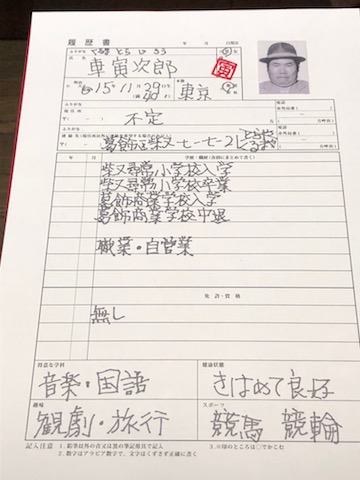 履歴書 年 月 日現在
ふりがな くるま とら じ ろう
氏名 車寅次郎 寅
15年11月29日生 本籍 東京
ふりがな
現住所 〒 不定
電話
ふりがな
〒 葛飾区柴又七-七-2 とらや くるま方
電話
年 月 学歴・職歴(各別にまとめて書く)
柴又尋常小学校入学
柴又尋常小学校卒業
葛飾商業学校入学
葛飾商業学校中退
職業・自営業
年 月 免許・資格
無し
得意な学科 健康状態
音楽・国語 きはめて良好
趣味 スポーツ
観劇・旅行 競馬 競輪
記入注意 1.鉛筆以外の青又は黒の筆記用具で記入 3.※印のところは○でかこむ
2.数字はアラビア数字で、文字はくずさず正確に書く